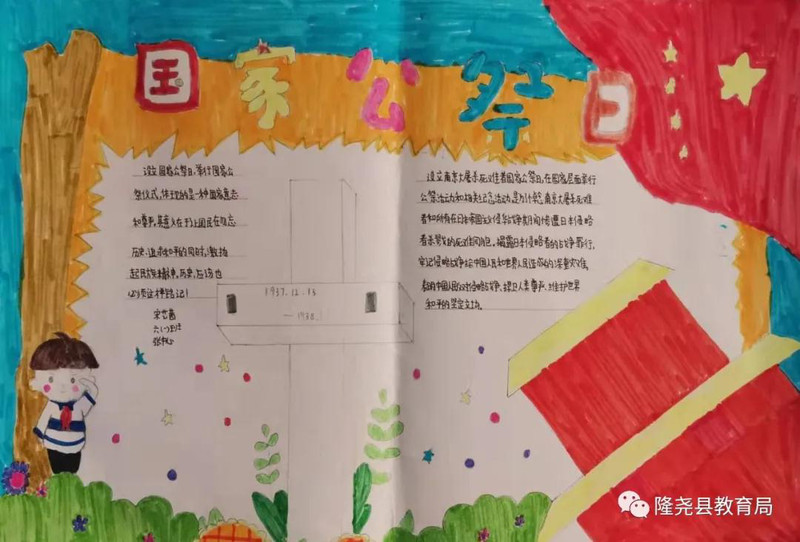 国家公祭日
设立国家公祭日,举行国家公
祭仪式,体现的是一种国家意志
和尊严,其意义在于让国民在勿忘
历史、追求和平的同时,激扬
起民族精神。历史,在场也
必须这样铭记!
六(1)班
设立南京大屠杀死难者国家公祭日,在国家层面举行
公祭活动和相关纪念活动,是为悼念南京大屠杀死难
者和所有在日本帝国主义侵华战争期间惨遭日本侵略
者杀戮的死难同胞,揭露日本侵略者的战争罪行,
牢记侵略战争给中国人民和世界人民造成的深重灾难,
表明中国人民反对侵略战争、捍卫人类尊严、维护世界
和平的坚定立场。
1937.12.13
—1938.1
隆尧县教育局